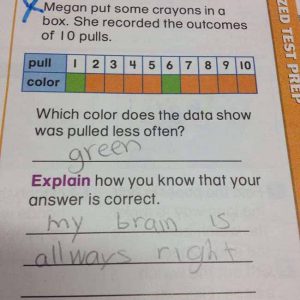 Megan put some crayons in a
box. She recorded the outcomes
of 10 pulls.
pull 1 2 3 4 5 6 7 8 9 10
color
Which color does the data show
was pulled less often?
green
Explain how you know that your
answer is correct.
my brain is
allways right
ZED TEST PREP